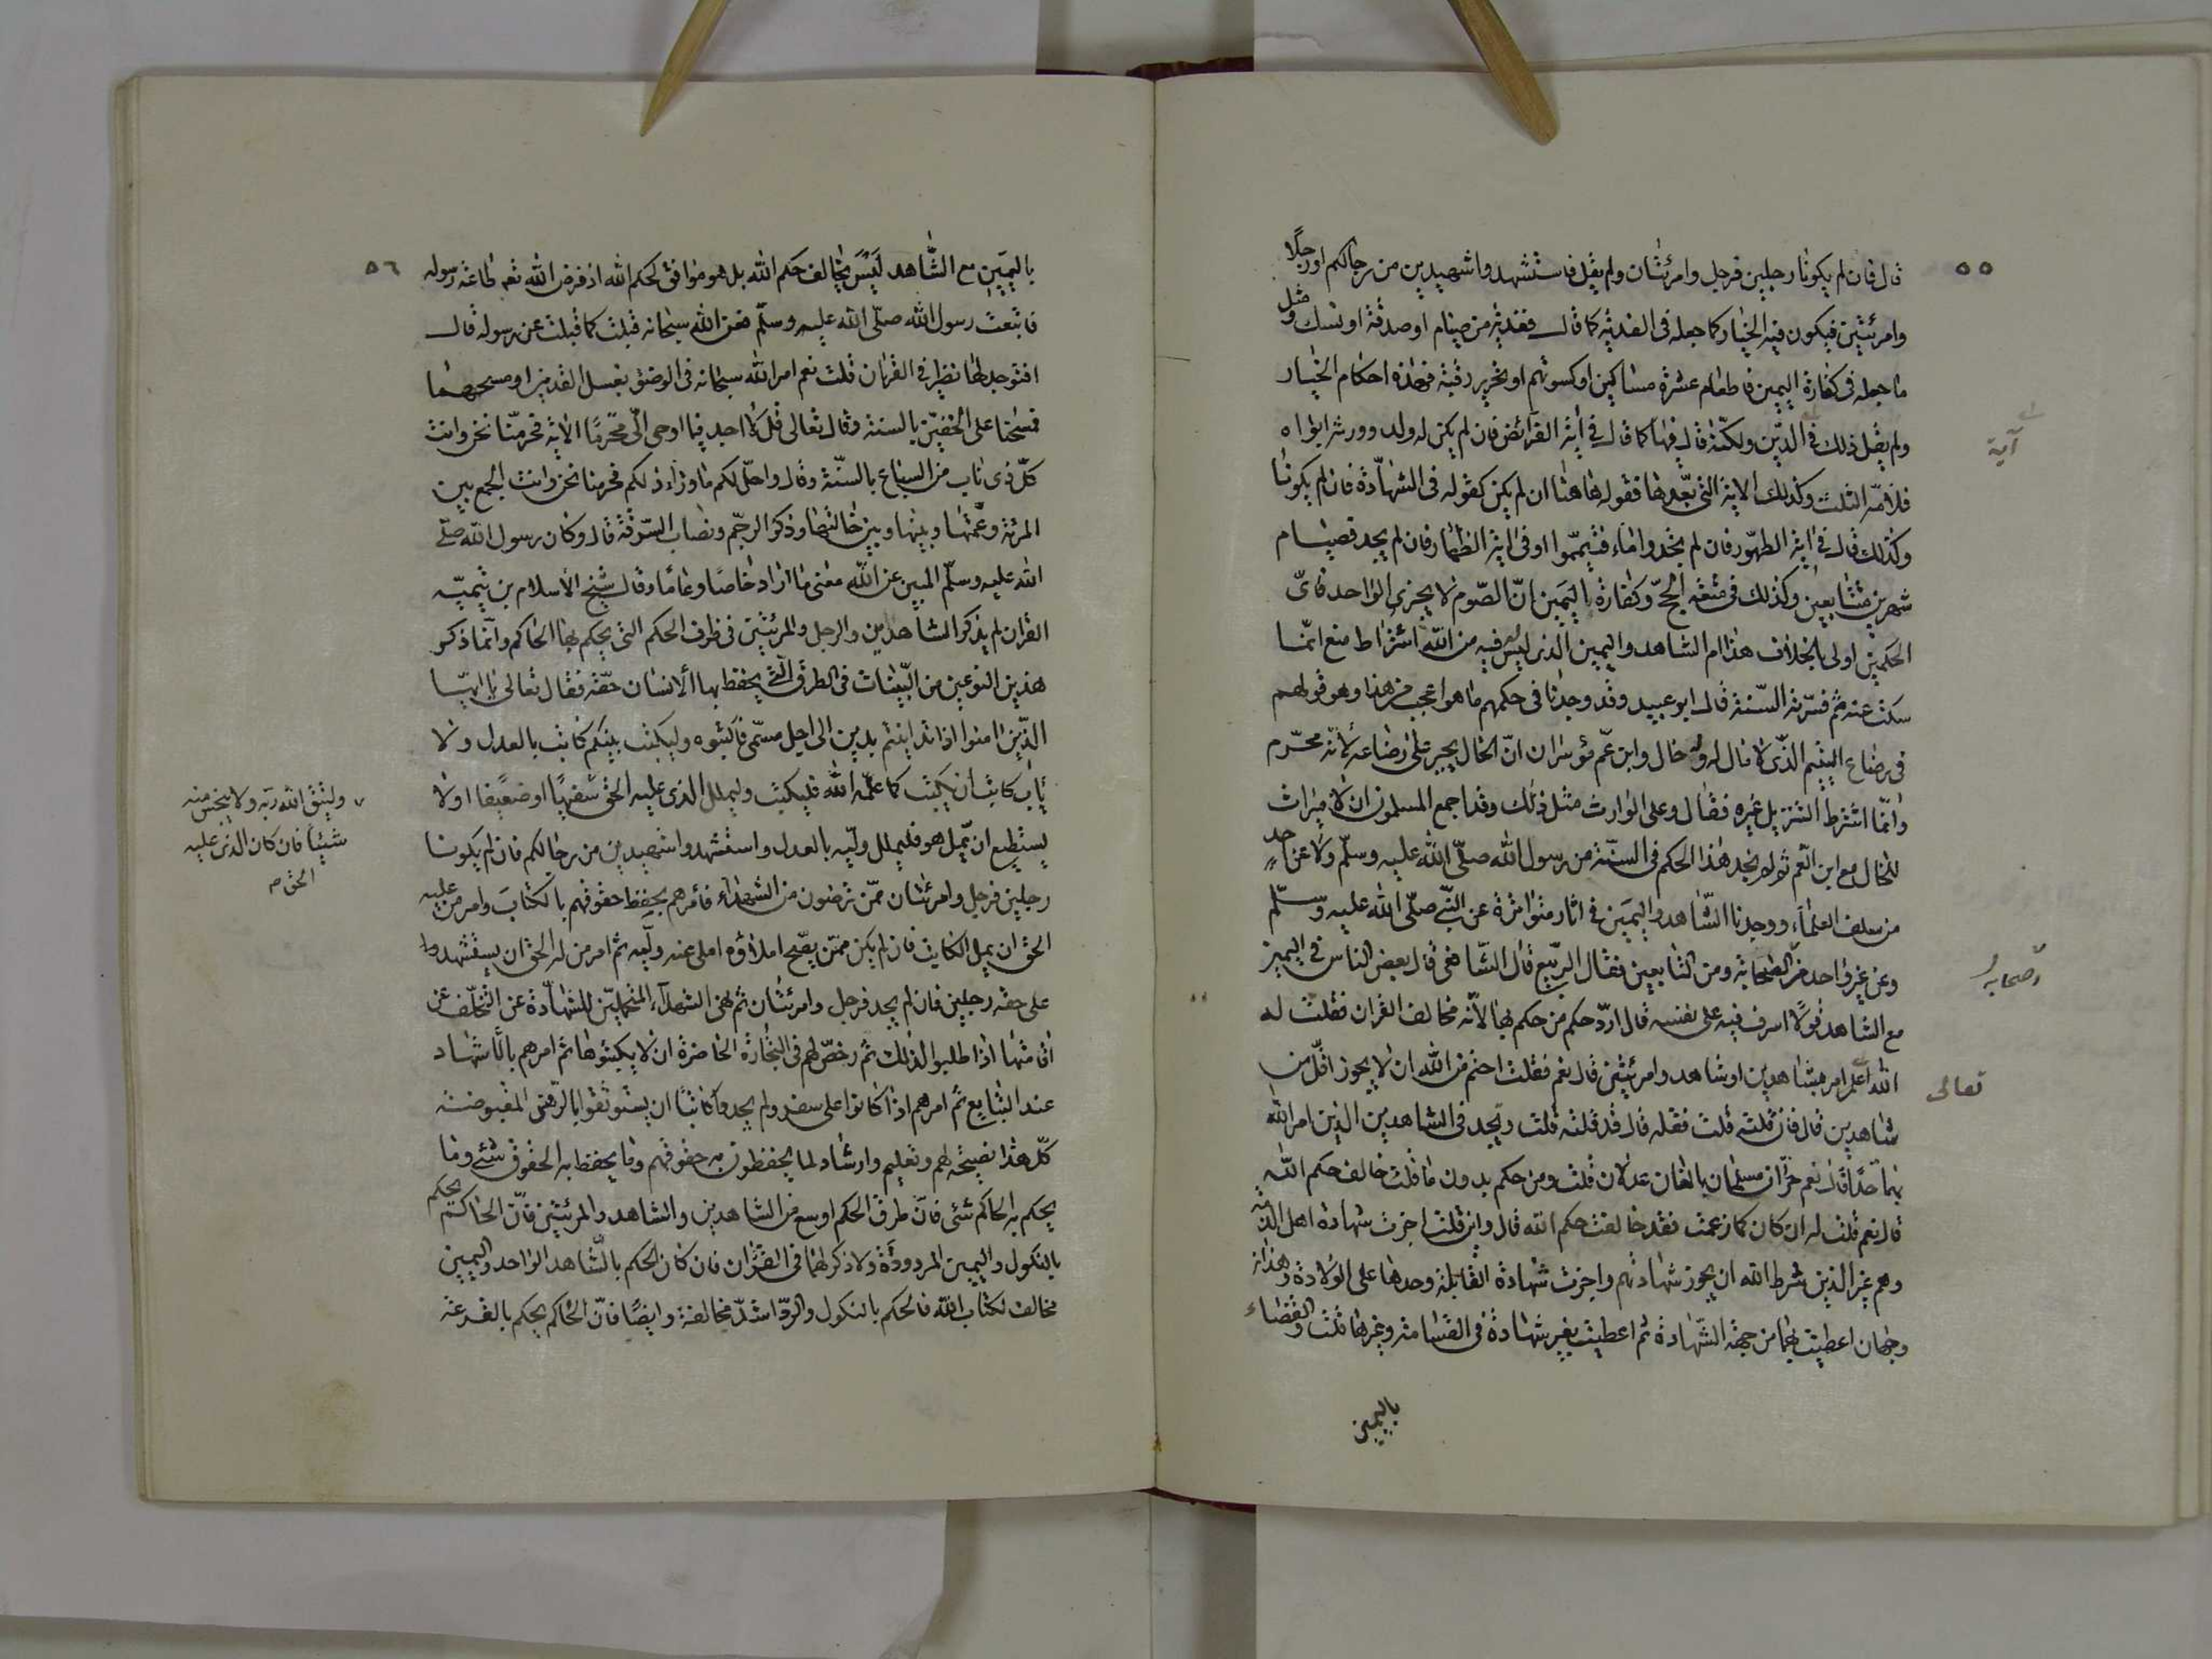 ٥٥
قال فان لم يكونا رجلين فرجل وامرئتان ولم يقل فاستشهدوا شهيدين من رجالكم او رجلًا
وامرئتين فيكون فيه الخيار كما جعله فى الفدية كما قال ففدية من صيام او صدقة او نسك ومثل
ما جعله فى كفارة اليمين فاطعام عشرة مساكين او كسوتهم او تحرير رقبة فهذه احكام الخيار
ولم يقل ذلك فى الدّين ولكنّه قال فيها كما قال فى اية الفرائض فان لم يكن له ولد وورثه ابواه
آية
فلامّه الثلث وكذلك الاية التى بعّدها فقوله هاهنا ان لم يكن كقوله فى الشهادة فان لم يكونا
وكذلك قال فى اية الطهّور فان لم تجدوا ماء فتيمّموا وفى اية الظهار فان لم يجد فصيام
شهرين متتابعين وكذلك فى متعة الحجّ وكفارة اليمين انّ الصّوم لا يجزى الواحد فاىّ
الحكمين اولى بالخلاف هذا ام الشاهد واليمين الذى ليس فيه من الله اشتراط منع انّما
سكت عنه ثم فسّرته السّنة قال ابو عبيد وقد وجدنا فى حكمهم ما هو اعجب من هذا وهو قولهم
فى رضاع اليتيم الذّى لا مال له وله خال وابن عم موسران انّ الخال يجبر على رضاعه لأنّه محرم
وانّما اشترط التنزيل غيره فقال وعلى الوارث مثل ذلك وقد اجمع المسلمون ان لا ميراث
للخال مع ابن العّم ثم لم نجد هذا الحكم فى السنّة من رسول الله صلّى الله عليه وسلّم ولا عن احد
من سلف العلماء ووجدنا الشّاهد واليمين فى اثار متواترة عن النّبى صلّى الله عليه وسلّم
وعن غير واحد من الصحابة ومن التابعين فقال الربّيع قال الشّافعى قال بعض الناس فى اليمين
صحابه
مع الشاهد قولًا اسرف فيه على نفسه قال اردّ حكم من حكم بها لأنّه مخالف القران فقلت له
الله اعلم امر بشاهدين او شاهد وامرئتين قال نعم فقلت احتم من الله ان لا يجوز اقلّ من
تعالى
شاهدين قال فان قلته قلت فقله قال قد قلته قلت وتجد فى الشاهدين الذين امر الله
بهما حدّا قال نعم حرّان مسلمان بالغان عدلان قلت ومن حكم بدون ما قلت خالف حكم الله
قال نعم قلت له ان كان كما زعمت فقد خالفت حكم الله قال واين قلت اجزت شهادة اهل الذمّة
وهم غير الذين شرط الله ان يجوز شهادتهم واجزت شهادة القابلة وحدها على الولادة وهذان
وجهان اعطيت بهما من جهة الشّهادة ثم اعطيت بغير شهادة فى القسامة وغيرها قلت والقضاء
باليمين
٥٦
باليمين مع الشّاهد ليس يخالف حكم الله بل هو موافق لحكم الله اذ فرض الله تعه طاعة رسوله
فاتبعت رسول الله صلّى الله عليه وسلّم فعن الله سبحانه قبلت كما قبلت عن رسوله قال
افتوجد لهذا نظير فى القران قلت نعم امر الله سبحانه فى الوضوء بغسل القدمين او مسحهما
فمسحنا على الخفيّن بالسنة وقال تعالى قل لا اجد فيما اوحى الىّ محرّمًا الاية فحرمنا نحن وانت
كلّ ذى ناب من السباع بالسنّة وقال واحلّ لكم ما وراء ذلكم فحرمنا نحن وانت الجمع بين
المرئة وعمّتها وبينها وبين خالتها وذكر الرجم ونصاب السّرقة قال وكان رسول الله صلى
الله عليه وسلّم المبين عن الله معنى ما اراد خاصًا وعامًا وقال شيخ الاسلام بن تيميّة
القران لم يذكر الشاهدين والرجل والمرئتين فى طرف الحكم التى يحكم بها الحاكم وانّما ذكر
هذين النوعين من البيّنات فى الطرق التى يحفظ بها الانسان حقّه فقال تعالى يا ايها
الذّين امنوا اذا تداينتم بدين الى اجل مسمّى فاكتبوه وليكتب بينكم كاتب بالعدل ولا
ياب كاتب ان يكتب كما علّمه الله فليكتب وليملل الذى عليه الحق سفيهًا او ضعيفا او لا
وليتق الله ربّه ولا يبخس منه
شيئا فان كان الذى عليه
الحق صح
يستطيع ان يملّ هو فليملل وليّه بالعدل واستشهدوا شهيدين من رجالكم فان لم يكونا
رجلين فرجل وامرئتان ممّن ترضون من الشهداء فأمرهم بحفظ حقوقهم بالكتاب وامر من عليه
الحق ان يمل الكاتب فان لم يكن ممّن يصّح املاؤه املى عنه وليّه ثم امر من له الحق ان يستشهدوا
على حقه رجلين فان لم يجد فرجل وامرئتان ثم نهى الشهداء المتحمليّن للشهادة عن التخلّف عن
اقامتها اذا طلبوا لذلك ثمّ رخصّ لهم فى التجارة الحاضرة ان لا يكتبوها ثم امرهم بالأشهاد
عند التبايع ثمّ امرهم اذا كانوا على سفر ولم يجدوا كاتبًا ان يستوثقوا بالرّهن المقبوضة
كلّ هذا نصيحة لهم وتعليم وارشاد لما يحفظون به حقوقهم وما يحفظ به الحقوق شئ وما
يحكم به الحاكم شئى فانّ طرق الحكم اوسع من الشاهدين والشاهد والمرئتين فانّ الحاكم يحكم
بالنكول واليمين المردودة ولا ذكر لهما فى القران فان كان الحكم بالشّاهد الواحد واليمين
مخالف لكتاب الله فالحكم بالنكول والردّ اشدّ مخالفة وايضًا فانّ الحاكم يحكم بالقرعة